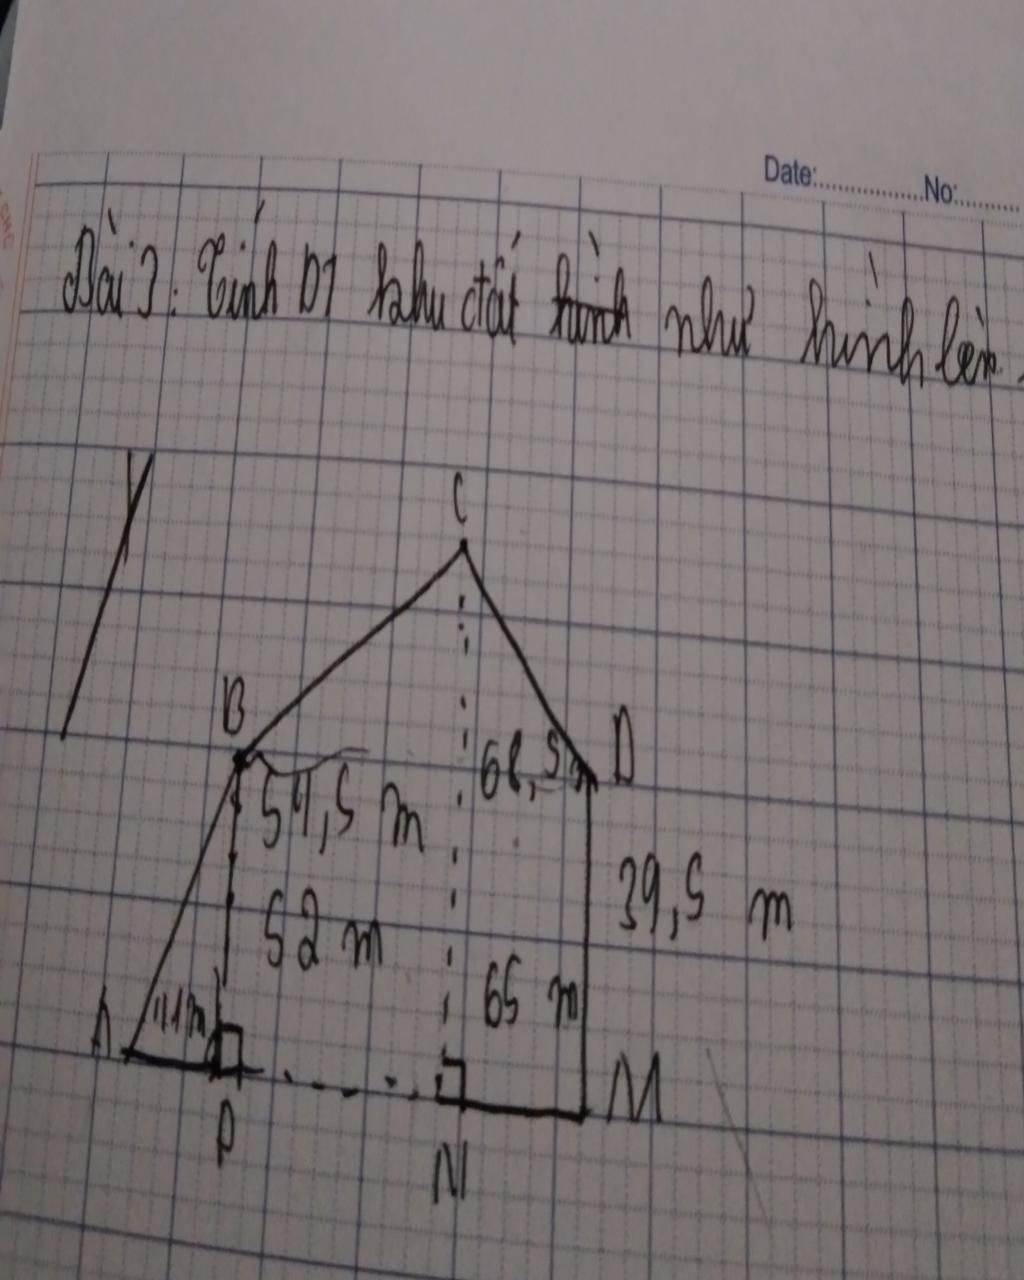 Date:................No:..........
Bài 3: Tính DT khu đất hình như hình bên.
C
B
D
68,5 m
54,5 m
39,5 m
52 m
65 m
A
11m
M
P
N